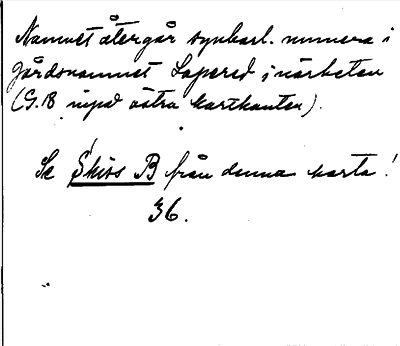 Namnet återgår synbarl. numera i
gårdsnamnet Lapered i närheten
(G.18 invid östra kartkanten).
Se Skiss B från denna karta!
36.